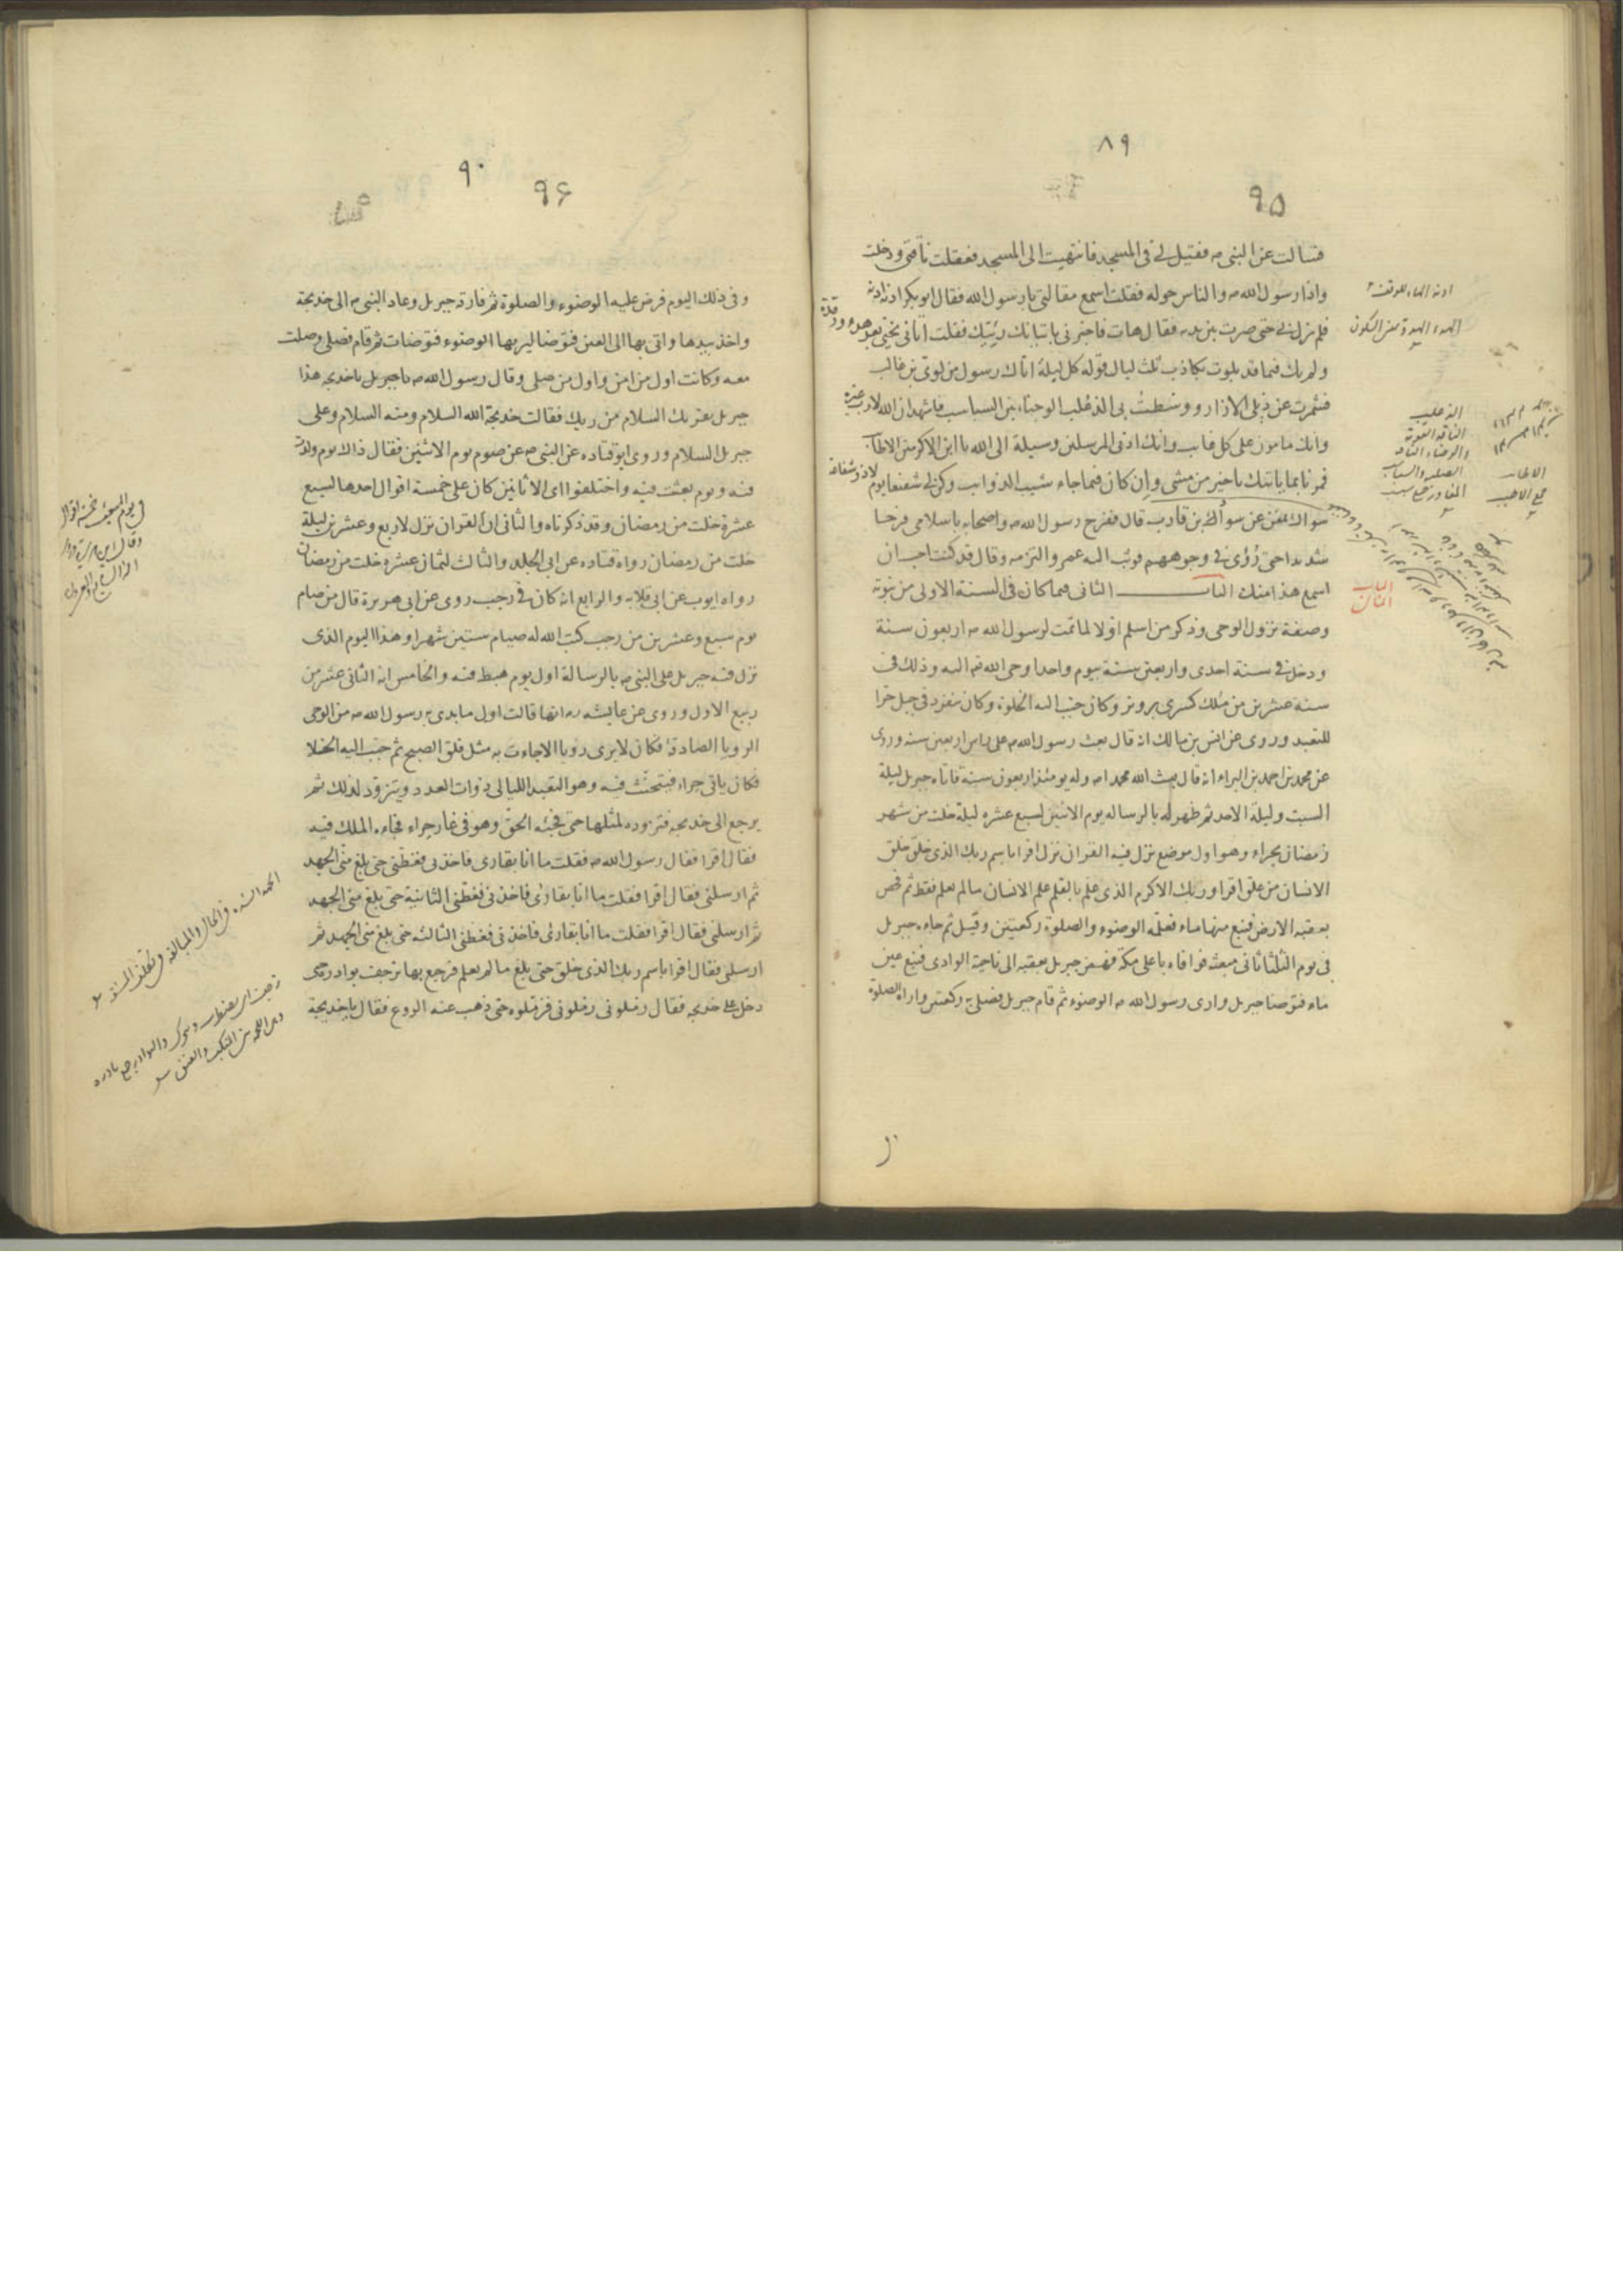 ٨٩
٩٥
فسالت عن النبى ص فقيل لى فى المسجد فانتهيت الى المسجد فعقلت ناقتى ودخلت
واذا رسول الله ص والناس حوله فقلت اسمع مقالتى يا رسول الله فقال ابو بكر ادنه ادنه
فلم يزل بى حتى صرت بين يديه فقال هات فاخبرنى باتيانك رئيك فقلت اتانى نجيى بعد هدء ورقدة
ولم يك فيما قد بلوت بكاذب ثلث ليال قوله كل ليلة اتاك رسول من لوى بن غالب
فشمرت عن ذيلى الازار ووسطت بى الذعلب الوجناء بين السباسب فاشهد ان الله لا رب غيره
وانك مامون على كل غايب وانك ادنى المرسلين وسيلة الى الله يا ابن الاكرمين الاطايب
فمرنا بما ياتيك يا خير من مشى وان كان فيما جاء شيب الذوايب وكن لى شفيعا يوم لا ذو شفاعة
سواك بمغن عن سواد بن قارب قال ففرح رسول الله ص واصحابه باسلامى فرحا
شديدا حتى رؤى فى وجوههم فوثب اليه عمر والتزمه وقال قد كنت احب ان
اسمع هذا منك الباب الثانى فيما كان فى السنة الاولى من نبوته
وصفة نزول الوحى وذكر من اسلم اولا لما تمت لرسول الله ص اربعون سنة
ودخل فى سنة احدى واربعين سنة بيوم واحد اوحى الله تع اليه وذلك فى
سنة عشرين من ملك كسرى پرويز وكان حبب اليه الخلوة وكان ينفرد فى جبل حرا
للتعبد وروى عن انس بن مالك انه قال بعث رسول الله ص على راس اربعين سنه وروى
عن محمد بن احمد بن البراء انه قال بعث الله محمدا ص وله يومئذ اربعون سنة فاتاه جبريل ليلة
السبت وليلة الاحد ثم ظهر له بالرساله يوم الاثنين لسبع عشره ليلة خلت من شهر
رمضان بحراء وهو اول موضع نزل فيه القران نزل اقرا باسم ربك الذى خلق خلق
الانسان من علق اقرا وربك الاكرم الذى علم بالقلم علم الانسان ما لم يعلم فقط ثم فحص
بعقبه الارض فنبع منها ماء فعلمه الوضوء والصلوة ركعتين وقيل ثم جاءه جبريل
فى يوم الثلثا ثانى مبعثه فوافاه باعلى مكة فهمز جبريل بعقبه الى ناحية الوادى فنبع عين
ماء فتوضا جبريل وارى رسول الله ص الوضوء ثم قام جبريل فصلى به ركعتين واراه الصلوة
ادنه الهاء للوقف
الهدء الهدوة بمعنى السكون
الذعلب
الناقة القوية
والوجناء الناقة
الصلبه والسباسب
المفاوز جمع سبسب
الاطايب
جمع الاطيب
الباب
الثانى
٩٠
٩۶
وفى ذلك اليوم فرض عليه الوضوء والصلوة ثم فارق جبريل وعاد النبى ص الى خديجة
واخذ بيدها واتى بها الى العين فتوضا ليريها الوضوء فتوضات ثم قام فصلى وصلت
معه وكانت اول من امن واول من صلى وقال رسول الله ص يا جبريل يا خديجه هذا
جبريل يقريك السلام من ربك فقالت خديجة الله السلام ومنه السلام وعلى
جبريل السلام وروى ابو قتاده عن النبى ص عن صوم يوم الاثنين فقال ذاك يوم ولدت
فيه ويوم بعثت فيه واختلفوا اى الاثانين كان على خمسة اقوال احدها لسبع
عشرة خلت من رمضان وقد ذكرناه والثانى ان القران نزل لاربع وعشرين ليلة
خلت من رمضان رواه قتاده عن ابى الجلد والثالث لثمان عشره خلت من رمضان
رواه ايوب عن ابى قلابه والرابع انه كان فى رجب روى عن ابى هريرة قال من صام
يوم سبع وعشرين من رجب كتب الله له صيام ستين شهرا وهذا اليوم الذى
نزل فيه جبريل على النبى ص بالرسالة اول يوم هبط فيه والخامس انه الثانى عشر من
ربيع الاول وروى عن عايشه رض انها قالت اول ما بدى به رسول الله ص من الوحى
الرويا الصادقة فكان لا يرى رويا الا جاءت به مثل فلق الصبح ثم حبب اليه الخلا
فكان ياتى حراء فيتحنث فيه وهو التعبد الليالى ذوات العدد ويتزود لذلك ثم
يرجع الى خديجه فتزوده لمثلها حتى فجئه الحق وهو فى غار حراء فجاءه الملك فيه
فقال اقرا فقال رسول الله ص فقلت ما انا بقارى فاخذنى فغطنى حتى بلغ منى الجهد
ثم ارسلنى فقال اقرا فقلت ما انا بقارئ فاخذنى فغطنى الثانية حتى بلغ منى الجهد
ثم ارسلنى فقال اقرا فقلت ما انا بقارئ فاخذنى فغطنى الثالثه حتى بلغ منى الجهد ثم
ارسلنى فقال اقرا باسم ربك الذى خلق حتى بلغ ما لم يعلم فرجع بها ترجف بوادره حتى
دخل على خديجه فقال زملونى زملونى فزملوه حتى ذهب عنه الروع فقال يا خديجة